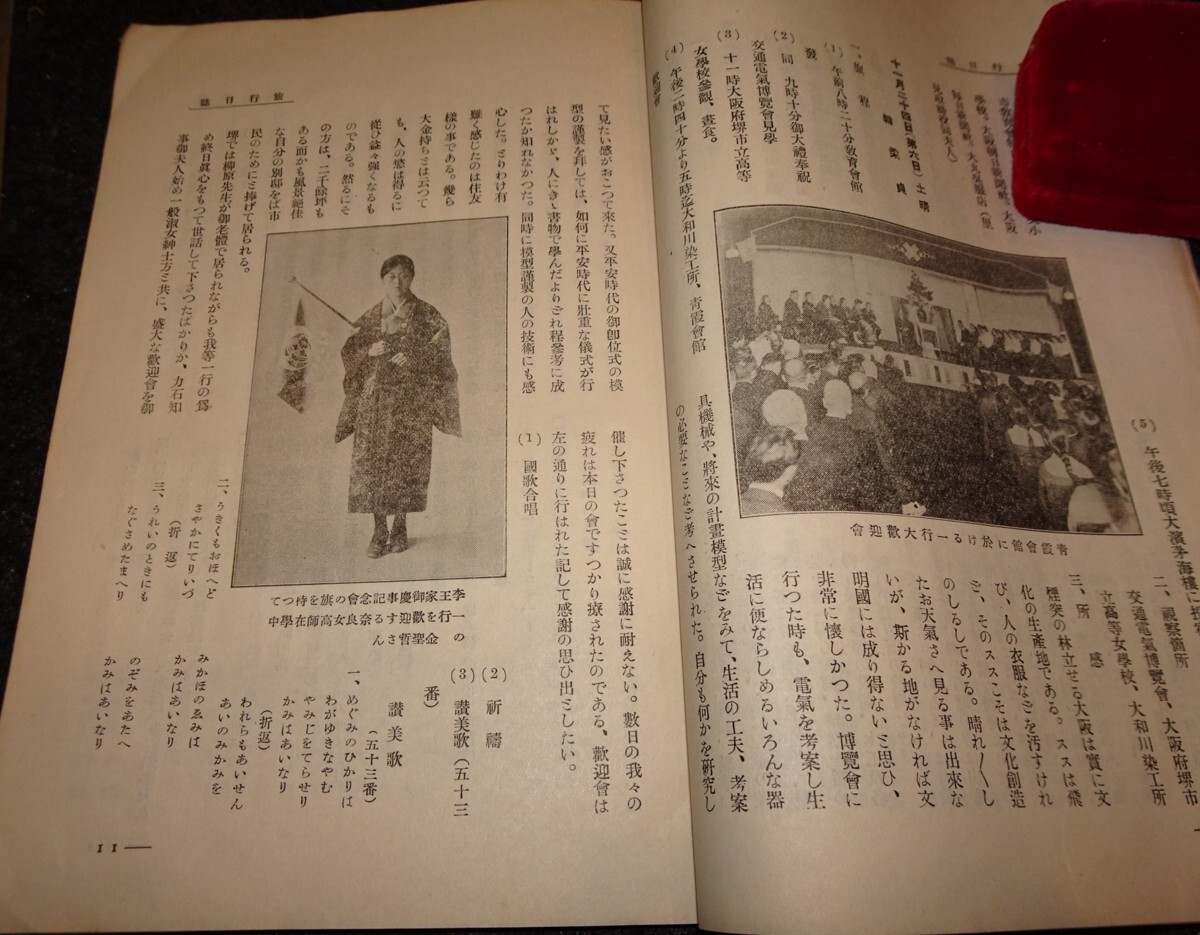 旅行日誌
小
學校、大阪朝日新聞社、大阪
毎日新聞社、大丸呉服店(里
見政務總長夫人)
十一月二十四日(第六日)土晴
韓奘
一、旅程
(1) 午前八時二十分敎育會館
發
(2) 同 九時十分御大禮奉祝
交通電氣博覽會見學
(3) 十一時大阪府堺市立高等
女學校參觀、晝食。
(4) 午後二時四十分より五時迄大和川染工所、靑霞會館
歡迎會
靑霞會館に於ける一行大歡迎會
(5) 午後七時頃大濱茅海樓に投
二、視察箇所
交通電氣博覽會、大阪府堺市
立高等女學校、大和川染工所
三、所感
煙突の林立せる大阪は實に文
化の生產地である。ススは飛
び、人の衣服などを汚すけれ
ど、そのススこそは文化創造
のしるしである。晴れ〲し
たお天氣さへ見る事は出來な
いが、斯かる地がなければ文
明國には成り得ないと思ひ、
非常に懷しかつた。博覽會に
行つた時も、電氣を考案し生
活に便ならしめるいろんな器
具機械や、將來の計畫模型などをみて、生活の工夫、考案
の必要なことなど考へさせられた。自分も何かを硏究し
て見たい感がおこつて來た。又平安時代の御卽位式の模
型の謹製を拜しては、如何に平安時代に壯重な儀式が行
はれしかと、人にきゝ書物で學んだよりどれ程參考に成
つたか知れなかつた。同時に模型謹製の人の技術にも感
心した。とりわけ有
難く感じたのは住友
樣の事である。幾ら
大金持ちとは云つて
も、人の慾は得るに
從ひ益々强くなるも
のである。然るにそ
の方は、二千餘坪も
ある而かも風景絕佳
な自分の別邸をば市
民のためにと捧げて居られる。
堺では柳原先生が御老體で居られながらも我等一行の爲
め終日眞心をもつて世話して下さつたばかりか、力石知
事御夫人始め一般淑女紳士方と共に、盛大な歡迎會を御
李王家御慶事記念會の旗を持つて
一行を歡迎する奈良女高師在學中
の金聖哲さん
催し下さつたことは誠に感謝に耐えない。數日の我々の
疲れは本日の會ですつかり療されたのである、歡迎會は
左の通りに行はれた記して感謝の思ひ出としたい。
(1) 國歌合唱
(2) 祈禱
(3) 讃美歌(五十三
番)
讃美歌
(五十三番)
一、めぐみのひかりは
わがゆきなやむ
やみぢをてらせり
かみはあいなり
(折返)
われらもあいせん
あいのみかみを
二、うきくもおほへど
さやかにてりいづ
みかほのゑみは
かみはあいなり
(折返)
三、うれいのときにも
なぐさめたまへり
のぞみをあたへ
かみはあいなり
旅行日誌
11